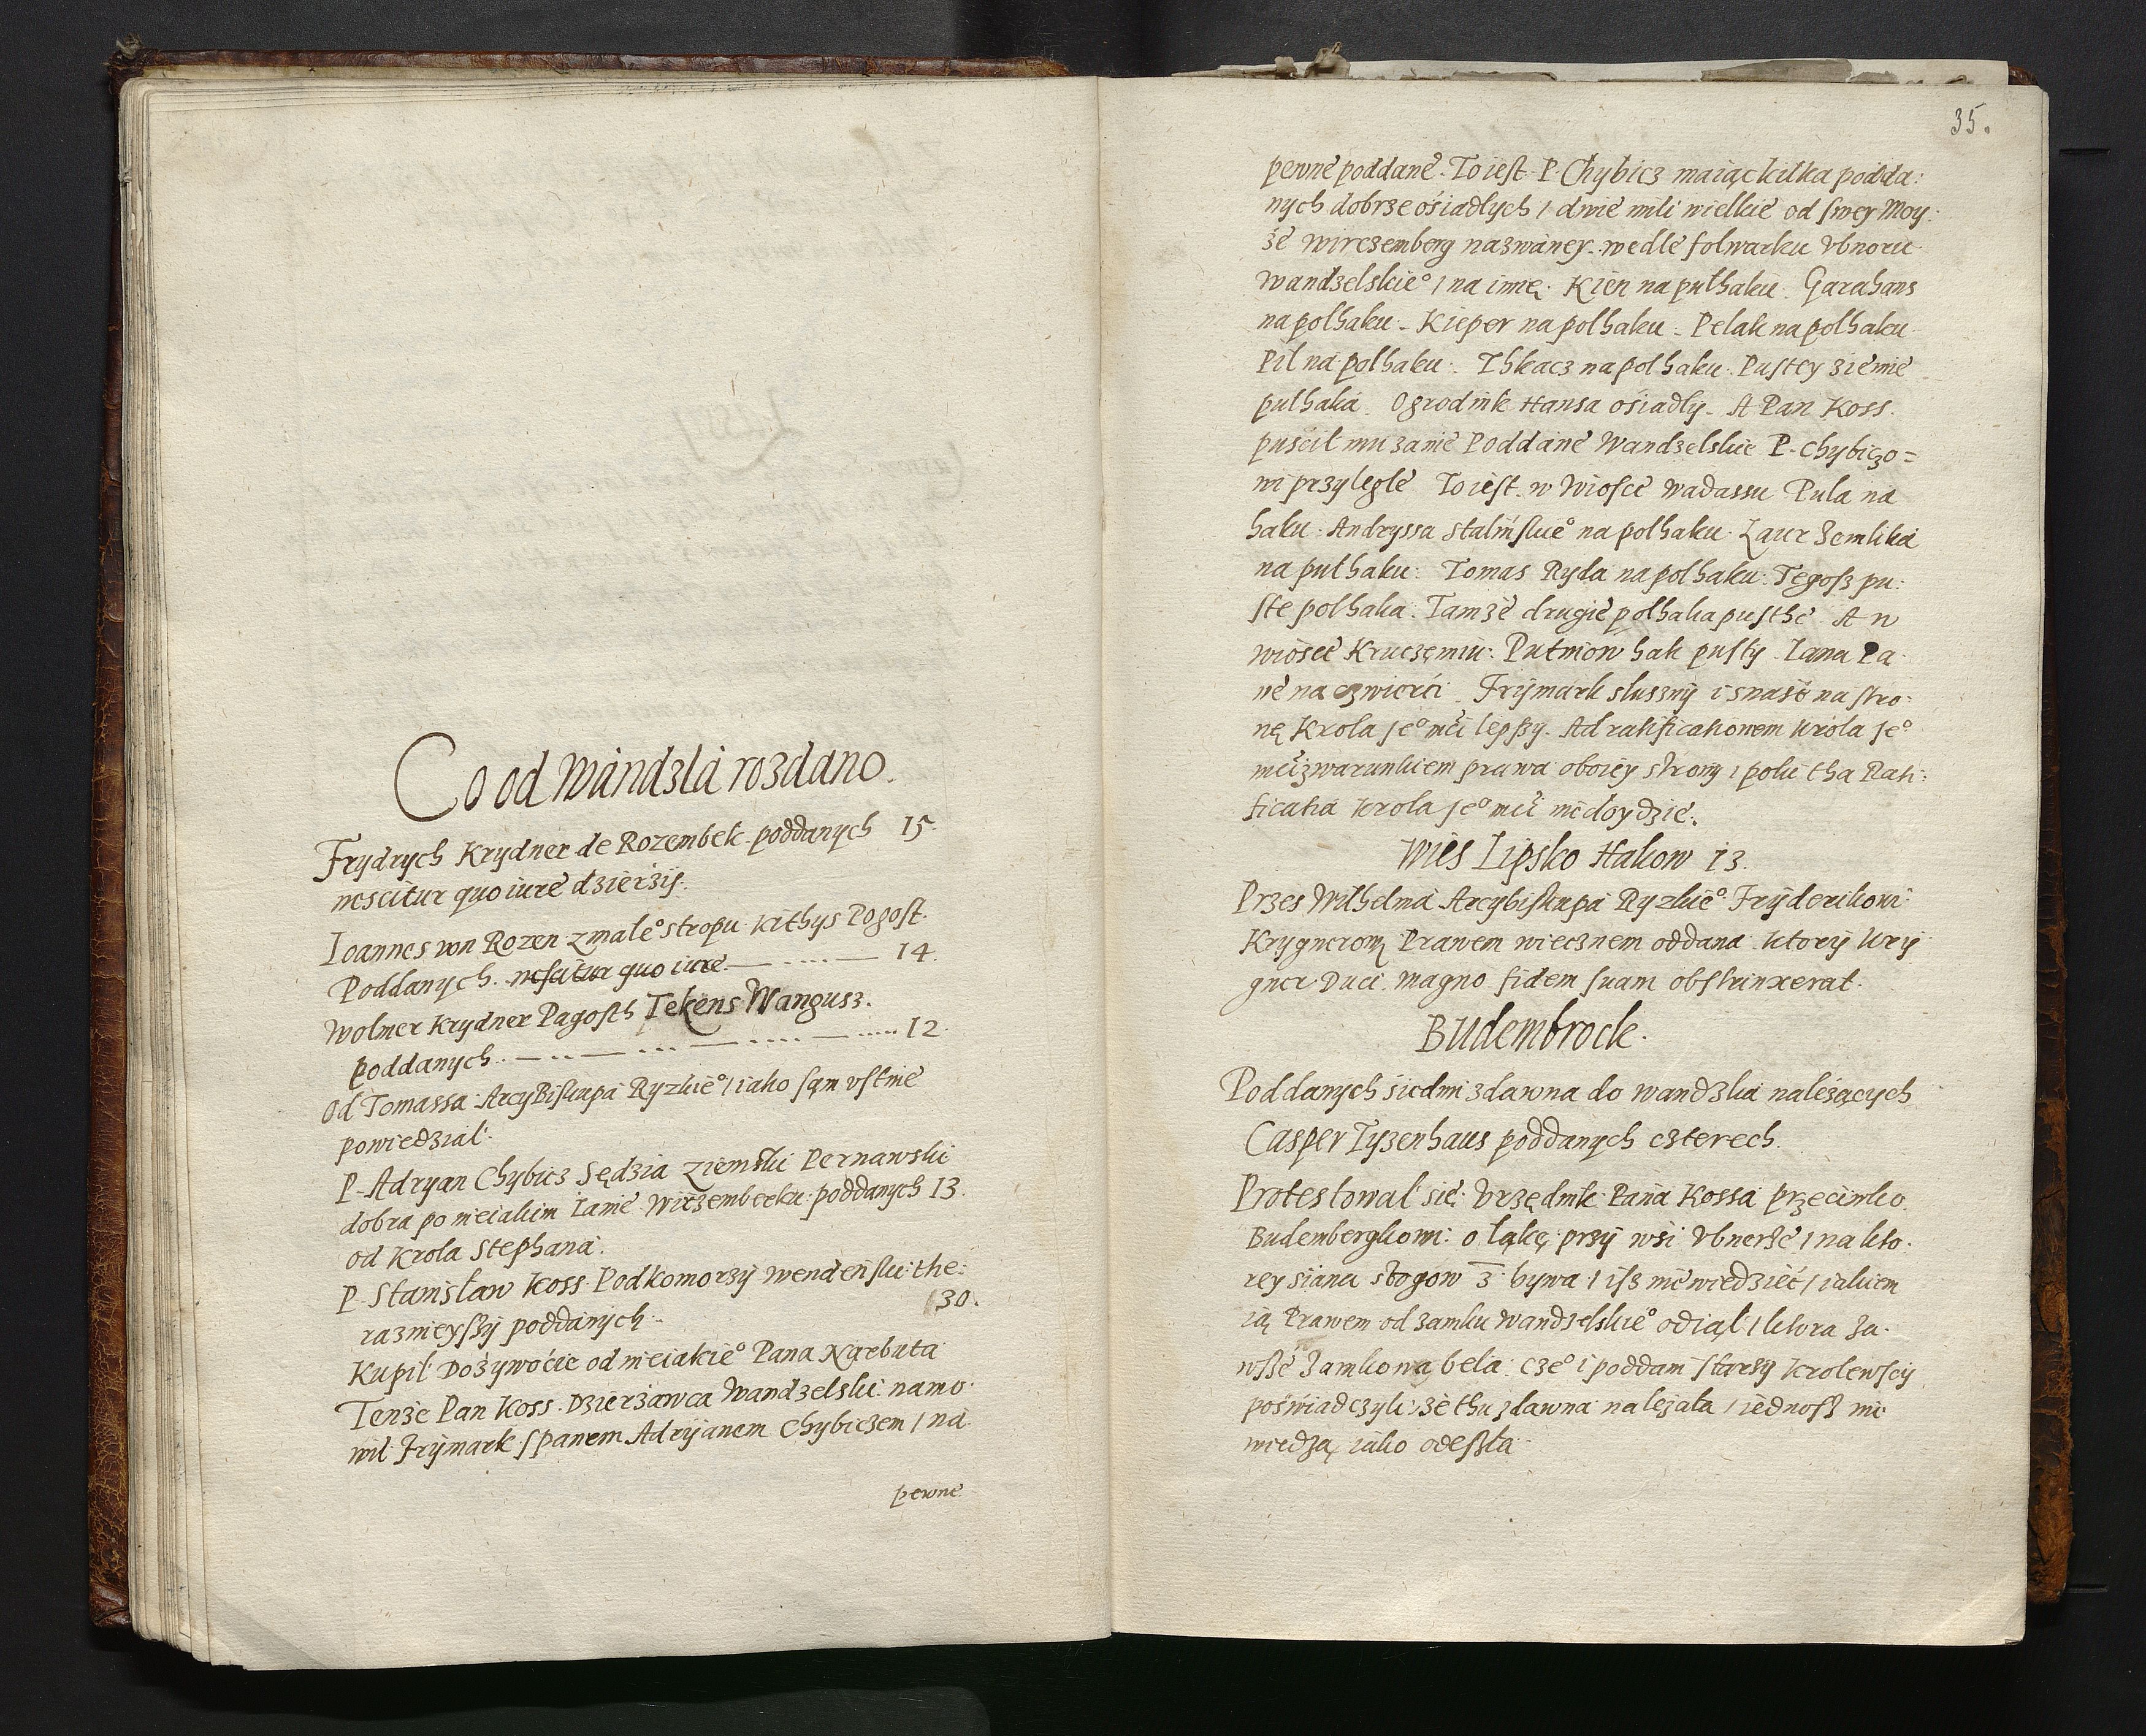 Co od Wándzlá rozdano.
Frydrych Krydner de Rozembek poddanych 15.
nescitur quo iure dzierzij.
Ioannes von Rozen z male° stropu Kithys Pogost.
Poddanych. nescitur quo iure. 14.
Wolmer Krydner Pagosth Tekens Wangusz.
poddanych 12
Od Tomassa ArcyBiskupá Ryzkie° / iako sąm vstnie
powiedział.
P. Adryan Chybicz Sędzia Ziemski Pernawski
dobra po nieiakim Ianie Wirzemberku poddanych 13.
od Krola Stephaná.
P. Stanisław Koss Podkomorzÿ Wendeński the:
raznieyszÿ poddánych 30.
Kupił Dożywoćie od nieiakie° Pana Narbuta
Tenże Pan Koss Dzierżawca Wandzelski namo:
wił Frÿmark s panem Adrÿanem Chybiczem / ná
pewne
35.
pewne poddane. To iest P. Chybicz maiąc kilka podda:
nych dobrze ośiadłych / dwie mili wielkie od swey Moy:
że Wirczemberg nazwaney. wedle folwarku Vbnoru
Wandzelskie° / na imię. Kien na pułhaku. Garahans
na połhaku. Kieper na połhaku. Pelak na połhaku
Pil na połhaku. Thkacz na połhaku. Pustey ziemie
pułhaka. Ogrodnik Hansa ośiadły. A Pan Koss.
puśćił mu zanie Poddáne Wandzelskie P. Chybiczo=
wi przyległe To iest w Wiosce Wadassu Pula na
haku. Andryssa Stalińskie° na połhaku. Laur Zemlika
na pułhaku. Tomas Ryda na połhaku. Tegosz pu:
ste połhaka. Tamże drugie połhaka pusthe. A w
wiosce Kruczęmiu. Putniow hak pusty Iana Pa
ne na czwierći. Frÿmark słusznÿ i snaść na stro:
nę Krola Je° mći lepszÿ. Ad ratificationem Krola Je°
mći z warunkiem prawa oboiey stronÿ / poki tha Rati:
ficatia Krola Je° mći nie doydzie.
Wieś Lipsko Hakow 13.
Przes Wilhelmá Arcybiskupá Ryzkie° Frÿderikowi
Krygnerowi Prawem wiecznem oddana. ktorÿ Krÿ
gner Duci magno fidem suam obstrinxerat.
Budembrock.
Poddanych śiedmi zdawna do Wandzla należących
Casper Tyzenhaus poddanych czterech.
Protestował się Vrzędnik Paná Kossa przeciwko
Budembergkowi o łąkę przÿ wśi Vbnerże / na kto:
rey siana stogow 3 bywa / isz nie wiedzieć / iakiem
ią Prawem od zamku Wandzelskie° odiął / ktora za:
wsze Zamkową beła. cze° i poddani starzÿ Krolewscÿ
poświadczyli, że thu zdawna należała / iednosz nie
wiedzą iako odeszła